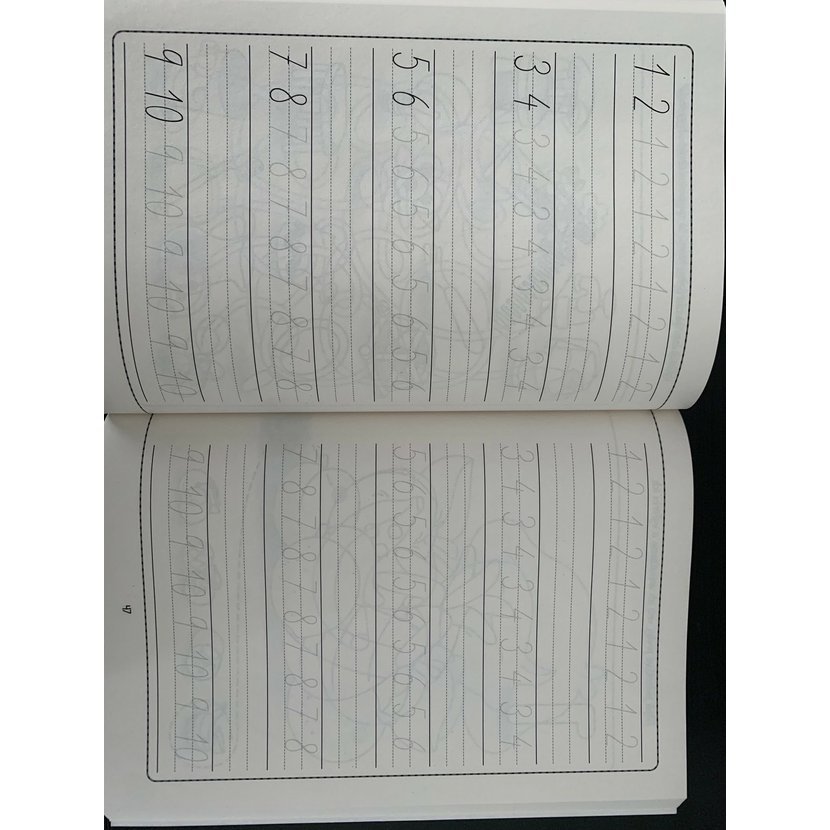 1 2 1 2 1 2 1 2 1 2
3 4 3 4 3 4 3 4 3 4
5 6 5 6 5 6 5 6 5 6
7 8 7 8 7 8 7 8 7 8
9 10 9 10 9 10 9 10
1 2 1 2 1 2 1 2 1 2
3 4 3 4 3 4 3 4 3 4
5 6 5 6 5 6 5 6 5 6
7 8 7 8 7 8 7 8 7 8
9 10 9 10 9 10 9 10
47